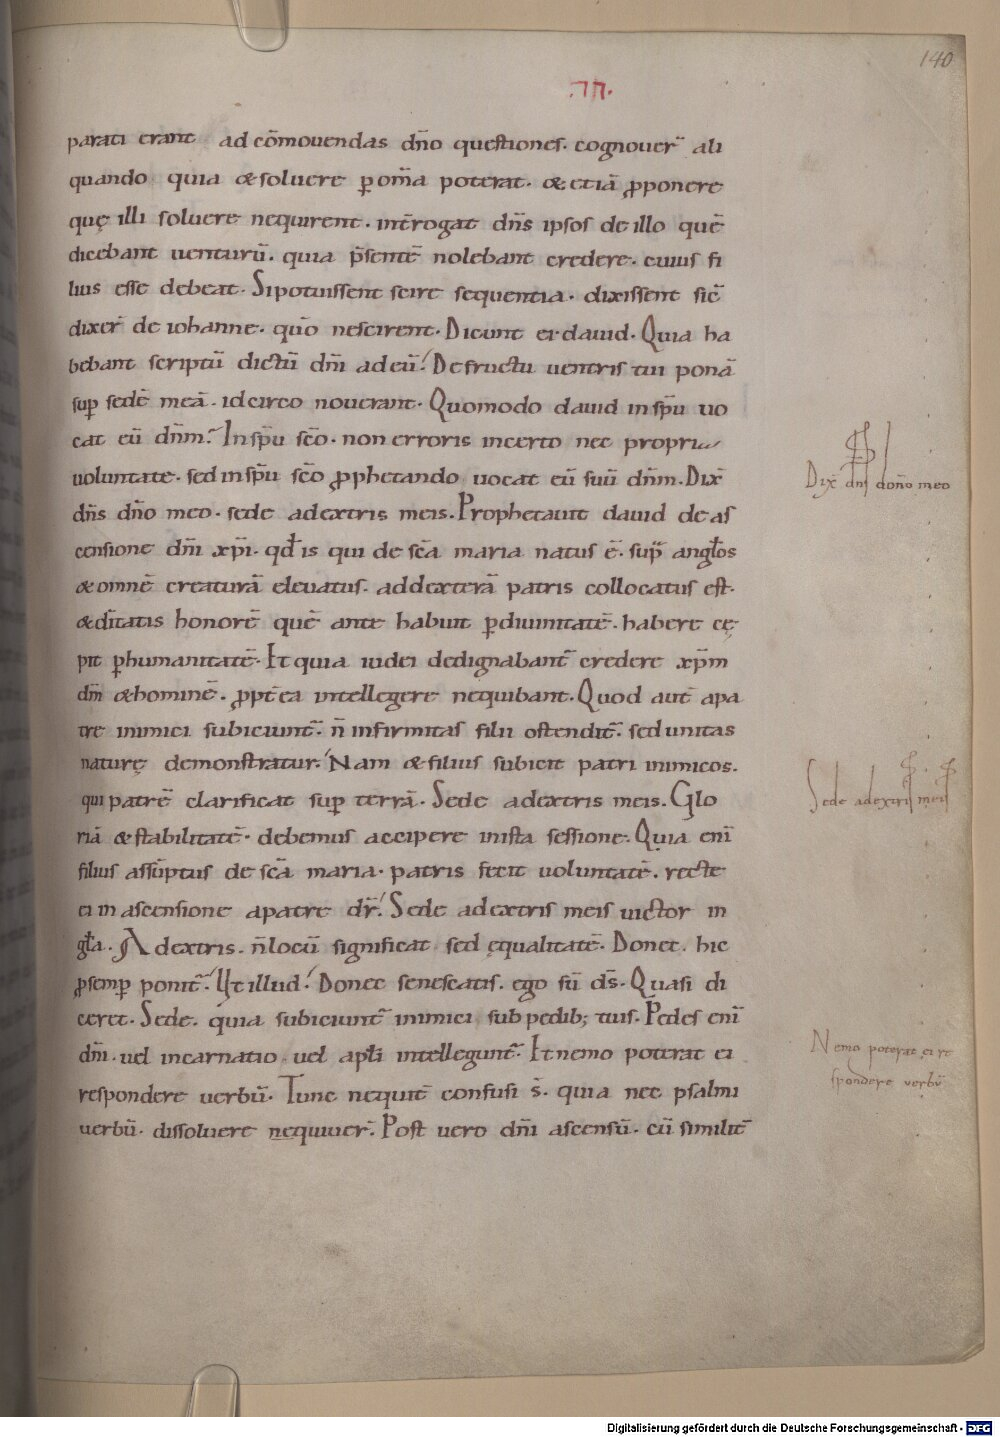 140
parati erant ad cōmouendas dn̄o questiones. cognouer̄ ali
quando quia & soluere ꝑ om̄a poterat. & etiā ꝓponere
quę illi soluere nequirent. int̄rogat dn̄s ipsos de illo quē
dicebant uenturū. quia p̄sentē nolebant credere. cuius fi
lius esse debeat. Si potuissent scire sequentia. dixissent sic̄
dixer̄ de iohanne. quō nescirent. Dicunt ei dauid. Quia ha
bebant scriptū dictū dn̄i ad eū. De fructu uentris tui ponā
suꝑ sedē meā. idcirco nouerant. Quomodo dauid in sp̄u uo
cat eū dn̄m. In sp̄u sc̄o. non erroris incerto nec propria
uoluntate. sed in sp̄u sc̄o ꝓphetando uocat eū suū dn̄m. Dix̄
dn̄s dn̄o meo. sede a dextris meis. Prophetauit dauid de as
censione dn̄i xp̄i. qđ is qui de sc̄a maria natus ē. suꝑ angłos
& omnē creaturā eleuatus. ad dexterā patris collocatus est.
& d̄itatis honorē quē ante habuit ꝑ diuinitatē. habere cę
pit ꝑ humanitatē. Et quia iudei dedignabant̄ credere xp̄m
dm̄ & hominē. ꝓpt̄ea intellegere nequibant. Quod aut̄ a pa
tre inimici subiciunt̄. n̄ infirmitas filii ostendit̄. sed unitas
naturę demonstratur. Nam & filius subicit patri inimicos.
qui patrē clarificat suꝑ terrā. Sede a dextris meis. Glo
riā & stabilitatē. debemus accipere in ista sessione. Quia eni̅
filius assūptus de sc̄a maria. patris fecit uoluntatē. recte
ei in ascensione a patre dr̄. Sede a dextris meis uictor in
gła. A dextris. n̄ locū significat sed ęqualitatē. Donec. hic
ꝓ semꝑ ponit̄. Ut illud. Donec senescatis. ego sū ds̄. Quasi di
ceret. Sede. quia subiciunt̄ inimici sub pedib; tuis. Pedes eni̅
dn̄i. uel incarnatio. uel apłi intellegunt̄. Et nemo poterat ei
respondere uerbū. Tunc nequit̄ confusi s̄. quia nec psalmi
uerbū. dissoluere nequiuer̄. Post uero dn̄i ascensū. cū similit̄
Dix̄ dn̄s dono meo
Sede a dextris meis
Nemo poterat ei re
spondere verbū
Digitalisierung gefördert durch die Deutsche Forschungsgemeinschaft - DFG